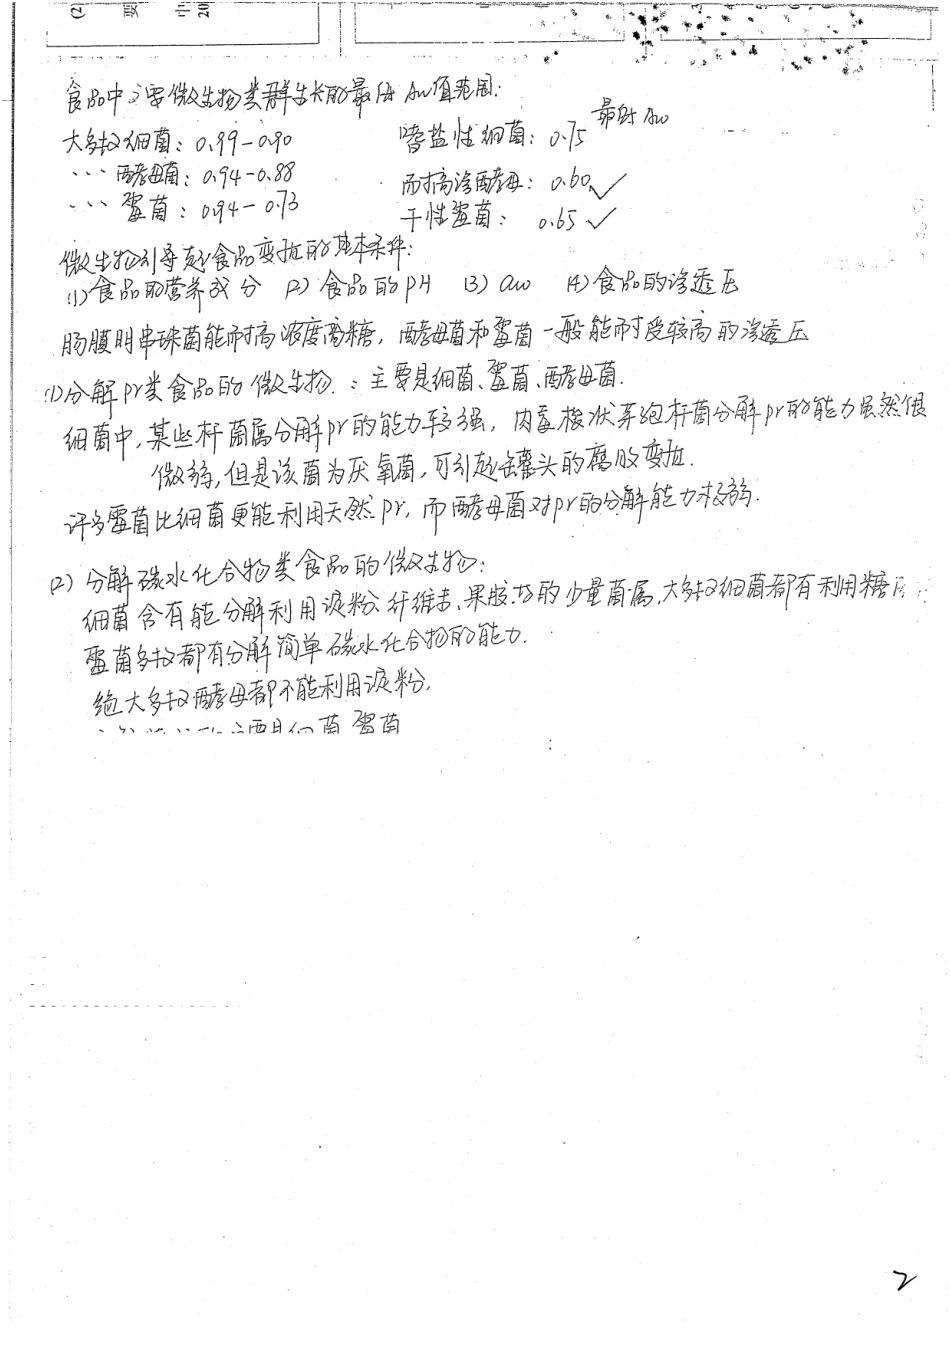 食品中主要微生物类群生长的最低Aw值范围:
最低Aw
大多数细菌: 0.99-0.90 嗜盐性细菌: 0.75
··· 酵母菌: 0.94-0.88 耐高渗酵母: 0.60 ✓
··· 霉菌: 0.94-0.73 干性霉菌: 0.65 ✓
微生物引导起食品变质的基本条件:
(1)食品的营养成分 (2)食品的PH (3) aw (4)食品的渗透压
肠膜明串珠菌能耐高浓度高糖, 酵母菌和霉菌一般能耐受较高的渗透压
(1)分解pr类食品的微生物.: 主要是细菌、霉菌、酵母菌.
细菌中, 某些杆菌属分解pr的能力较强, 肉毒梭状芽孢杆菌分解pr的能力虽然很
微弱, 但是该菌为厌氧菌, 可引起罐头的腐败变质.
许多霉菌比细菌更能利用天然pr, 而酵母菌对pr的分解能力极弱.
(2) 分解碳水化合物类食品的微生物:
细菌含有能分解利用淀粉、纤维素、果胶的少量菌属, 大多数细菌都有利用糖
霉菌多数都有分解简单碳水化合物的能力.
绝大多数酵母都不能利用淀粉.
主要是细菌 霉菌
2